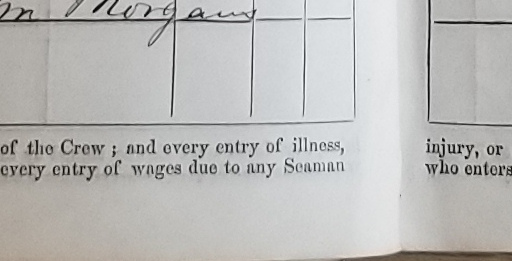 m Morgans
of the Crew ; and every entry of illness,
every entry of wages due to any Seaman
injury, or
who enters